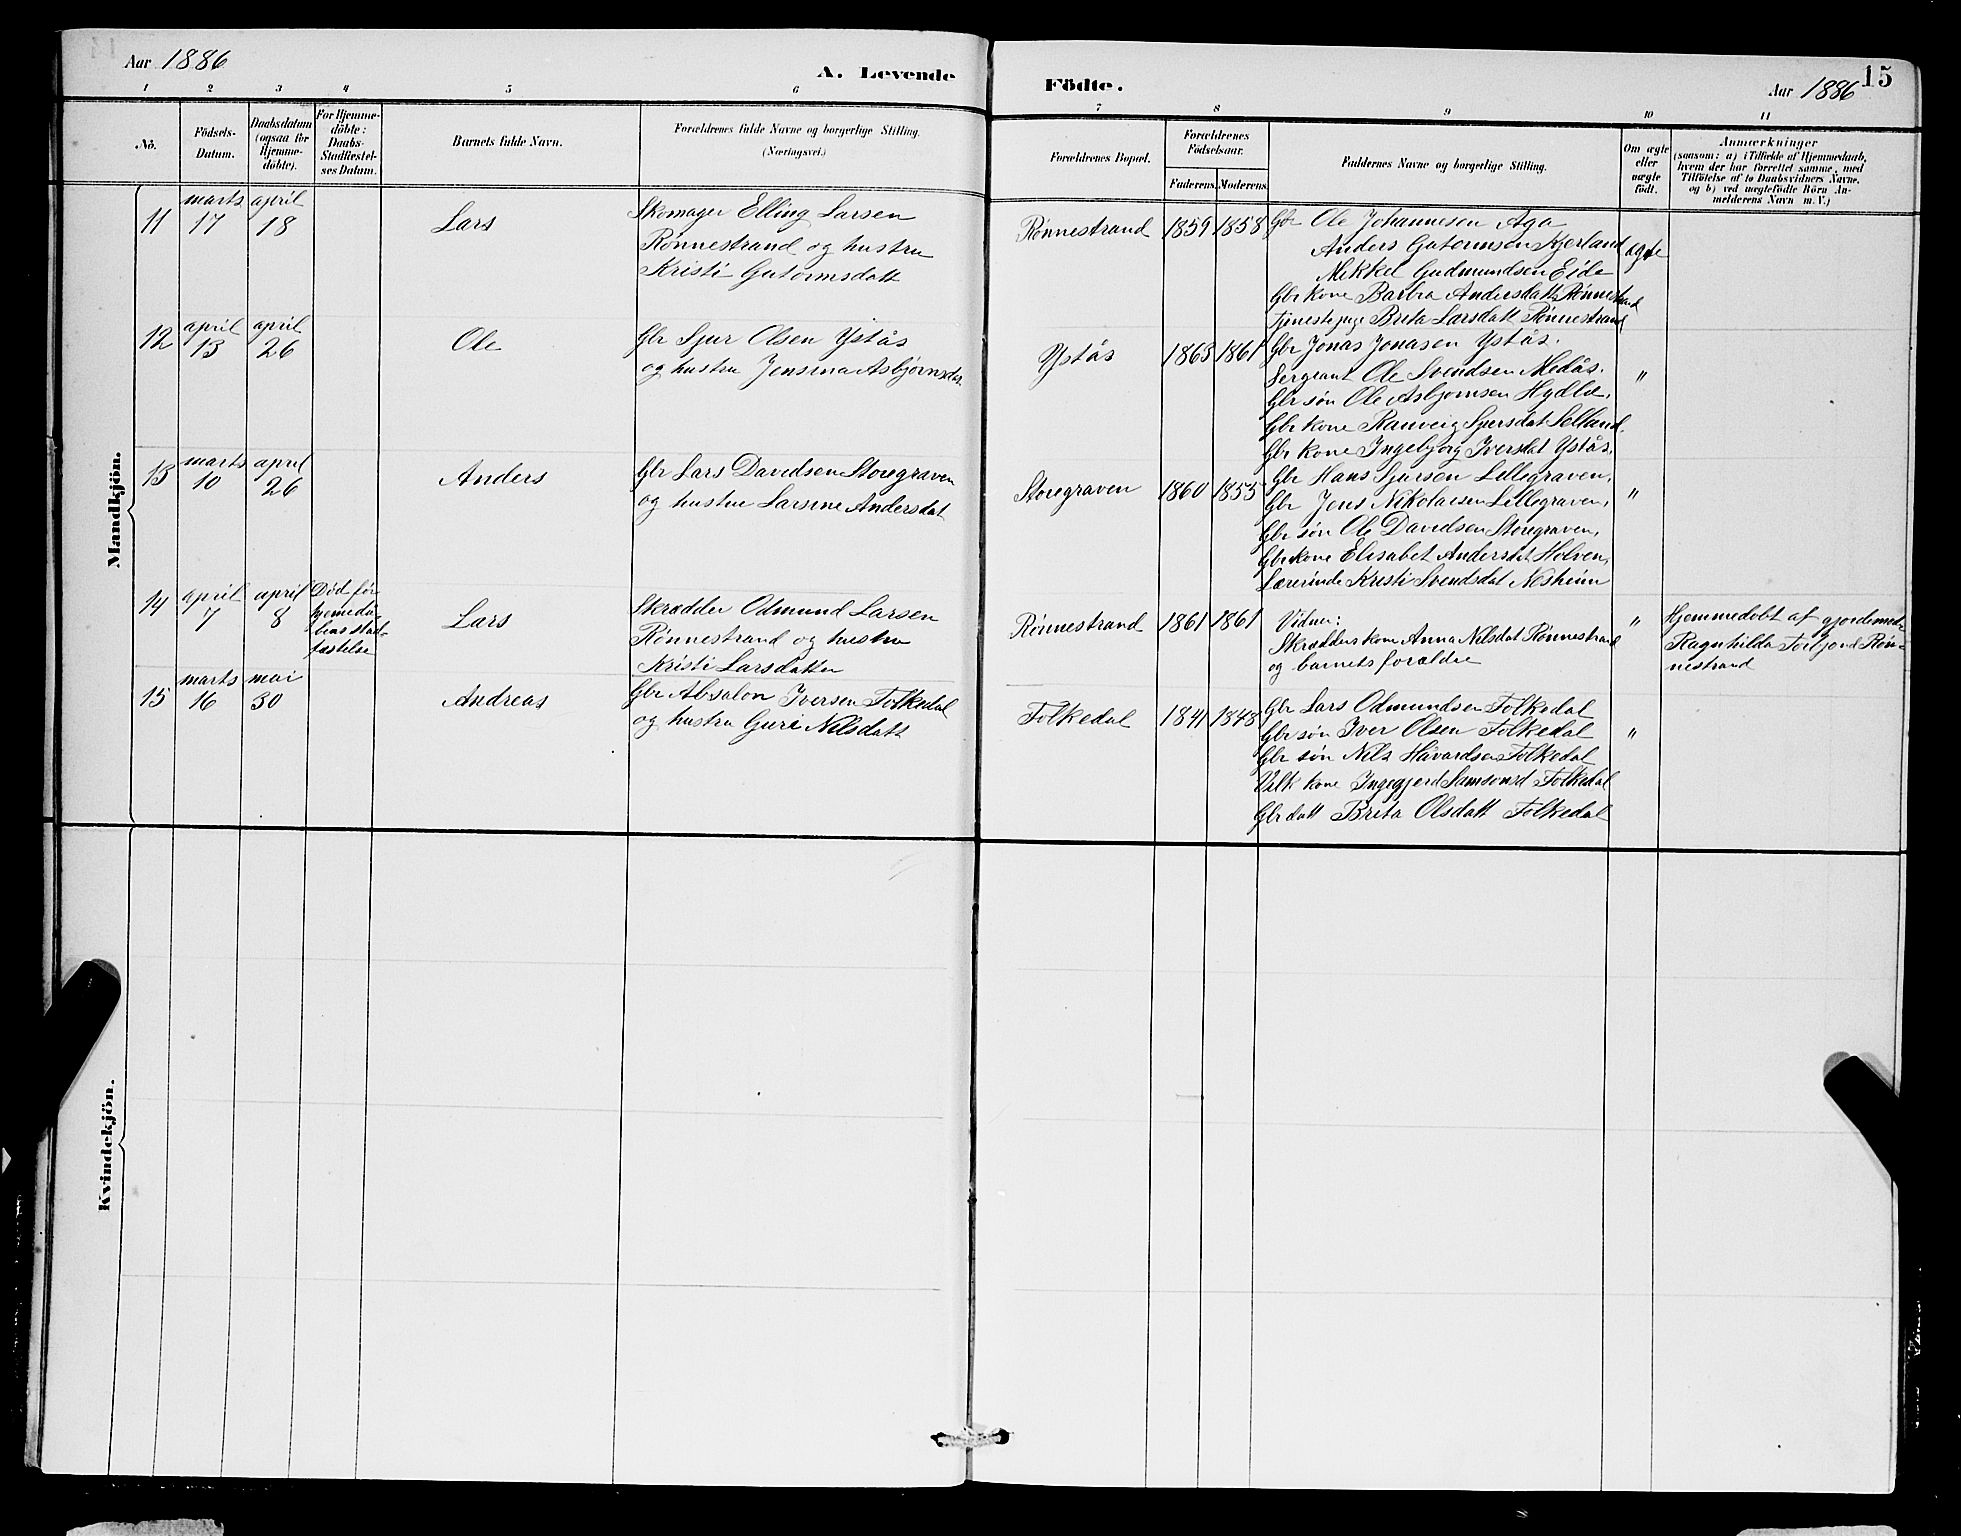 Aar 1886
A. Levende
1 2 3 4 5 6
Nô.
Födsels-
Datum.
Daabsdatum
(ogsaa for
Hjemme-
döbte).
For Hjemme-
döbte:
Daabs-
Stadfæstel-
ses Datum.
Barnets fulde Navn.
Forældrenes fulde Navne og borgerlige Stilling.
(Næringsvei.)
Mandkjön.
11
marts
17
april
18
Lars
Skomager Elling Larsen
Rønnestrand og hustru
Kristi Gutormsdatt
12
april
13
april
26
Ole
Gbr Sjur Olsen Ystås
og hustru Jensina Asbjørnsdat
13
marts
10
april
26
Anders
Gbr Lars Davidsen Storegraven
og hustru Larsine Andersdat
14
april
7
april
8
Død før
hjemedå-
bens stad-
fæstelse
Lars
Skrædder Odmund Larsen
Rønnestrand og hustru
Kristi Larsdatter
15
marts
16
mai
30
Andreas
Gbr Absalon Iversen Folkedal
og hustru Guri Nilsdatt
Kvindekjön.
15
Födte.
Aar 1886
7 8 9 10 11
Forældrenes Bopæl.
Forældrenes
Födselsaar.
Faderens. Moderens.
Faddernes Navne og borgerlige Stilling.
Om ægte
eller
uægte
födt.
Anmærkninger
(saasom: a) i Tilfælde af Hjemmedaab,
hvem der har forrettet samme, med
Tilföielse af to Daabsvidners Navne,
og b) ved uægtefödte Börn An-
melderens Navn m. V.)
Rønnestrand 1859 1858
Gbr Ole Johannesen Aga
Anders Gutormsen Kjerland
Mikkel Gudmundsen Eide
Gbr kone Barbra Andersdatt Rønnestrand
Tjenestepige Brita Larsdatt Rønnestrand
ægte
Ystås 1863 1861
Gbr Jonas Jonasen Ystås.
Sergeant Ole Svendsen Medås.
Gbr søn Ole Asbjørnsen Hydle.
Gbr kone Ranveig Sjursdat Selland.
Gbr kone Ingebjørg Iversdat Ystås.
"
Storegraven 1860 1855
Gbr Hans Sjursen Lillegraven,
Gbr Jens Nikolaisen Lillegraven,
Gbr søn Ole Davidsen Storegraven,
Gbr kone Elisabet Andersdat Holven,
Lærerinde Kristi Svendsdat Nesheim
"
Rønnestrand 1861 1861
Vidner:
Skrædders kone Anna Nilsdat Rønnestrand
og barnets forældre
"
Hjemmedøbt af gjordemod-
Ragnhilda Torbjønd Røn-
nestrand
Folkedal 1841 1848
Gbr Lars Odmundsen Folkedal
Gbr søn Iver Olsen Folkedal
Gbr søn Nils Håvardsen Folkedal
Vilk kone Ingegjerd Samsonsd Folkedal
Gbr datt Brita Olsdatt Folkedal
"